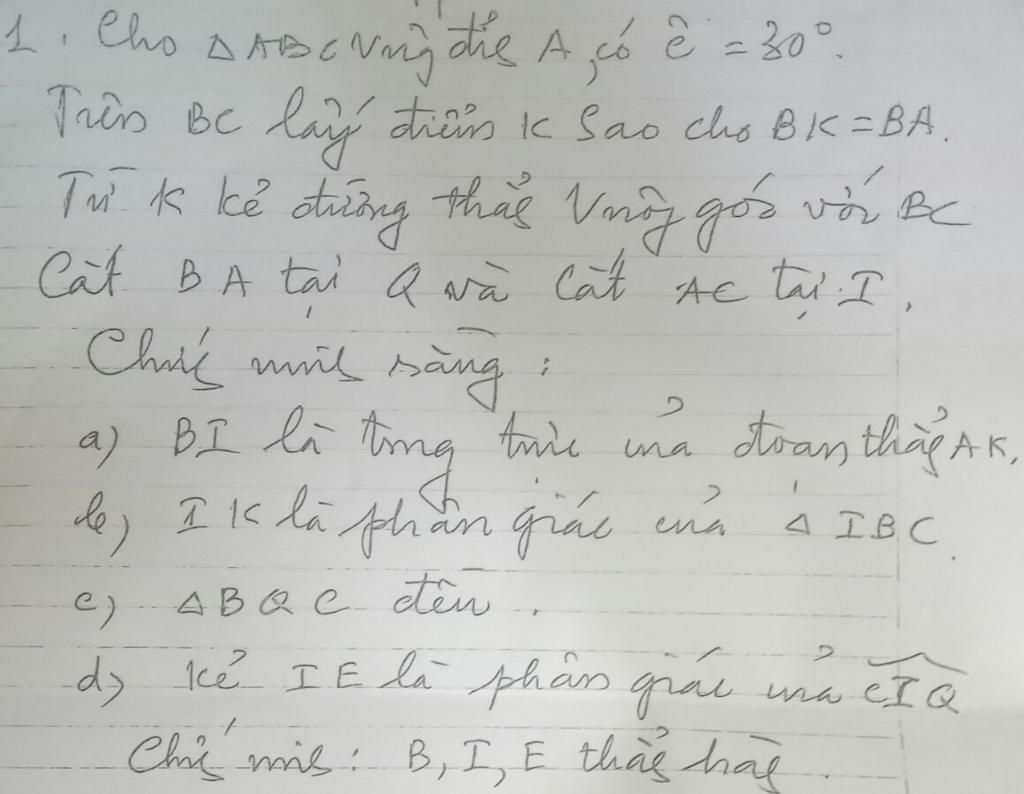 1. Cho △ABC vuông tại A, có Ĉ = 30°.
Trên BC lấy điểm K sao cho BK = BA.
Từ K kẻ đường thẳng vuông góc với BC
Cắt BA tại Q và cắt AC tại I.
Chứng minh rằng:
a) BI là trung trực của đoạn thẳng AK.
b) IK là phân giác của △IBC.
c) △BQC đều.
d) Kẻ IE là phân giác của CIQ
Chứng minh: B, I, E thẳng hàng.